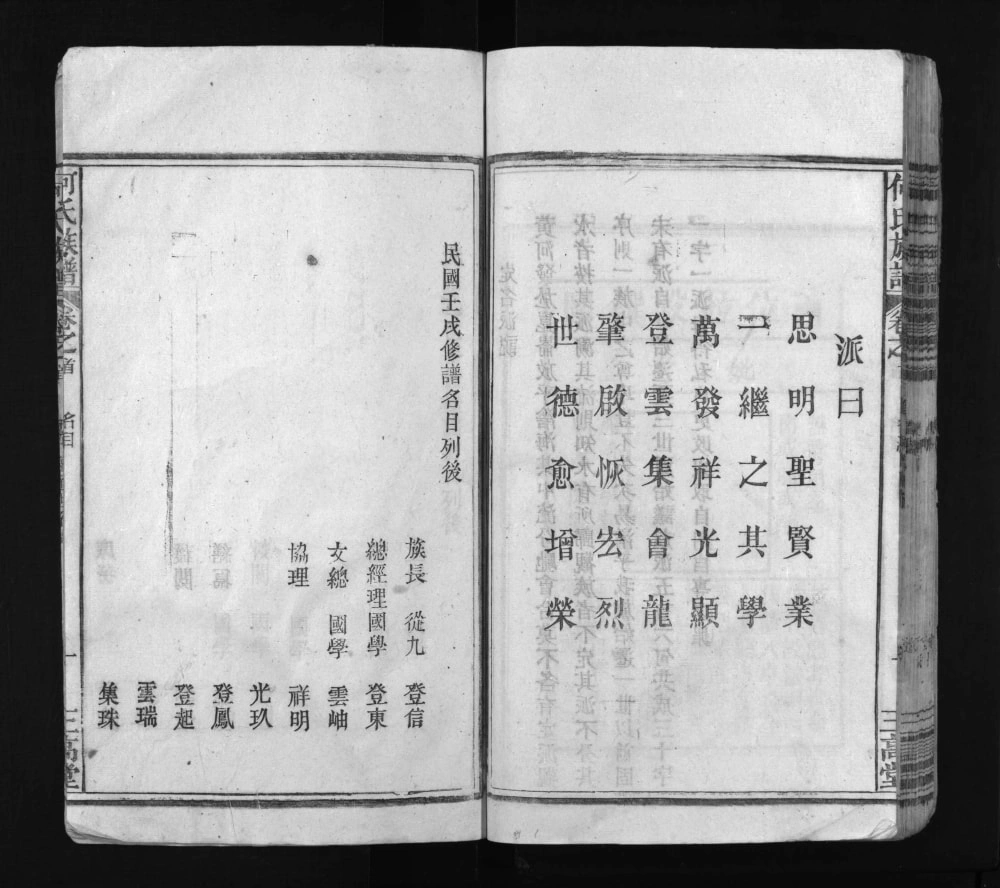 何氏族譜 卷之 三高堂
派曰
思明聖賢業
一繼之其學
萬發祥光顯
登雲集會龍
肇啟恢宏烈
世德愈增榮
民國壬戌修譜名目列後
族長 從九 登信
總經理國學 登東
文總 國學 雲岫
協理 祥明
光玖
登鳳
登起
雲瑞
集珠
何氏族譜 卷之首 名目 一 三高堂